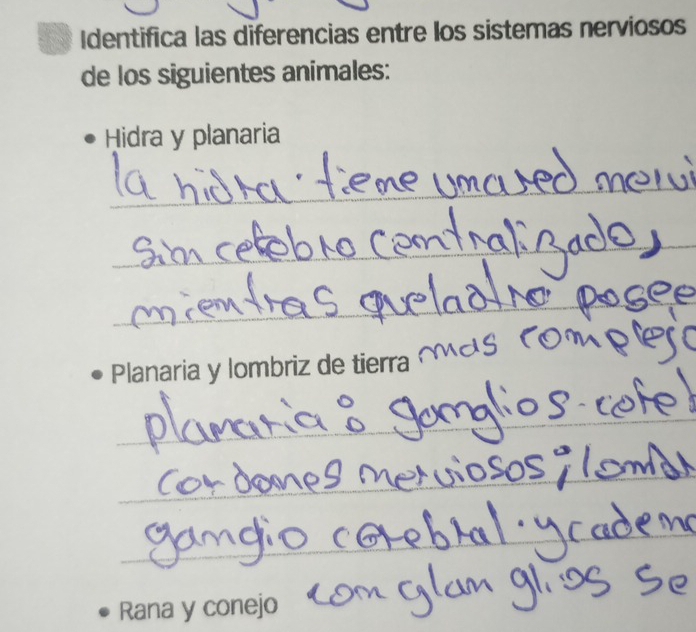 Identifica las diferencias entre los sistemas nerviosos
de los siguientes animales:
• Hidra y planaria
la hidra tiene una red nervi
sin cerebro centralizado,
mientras que la otra posee
mas complejo
• Planaria y lombriz de tierra
planaria: ganglios cereb
cordones nerviosos; lomb
gangio cerebral y cadena
con glanglios se
• Rana y conejo